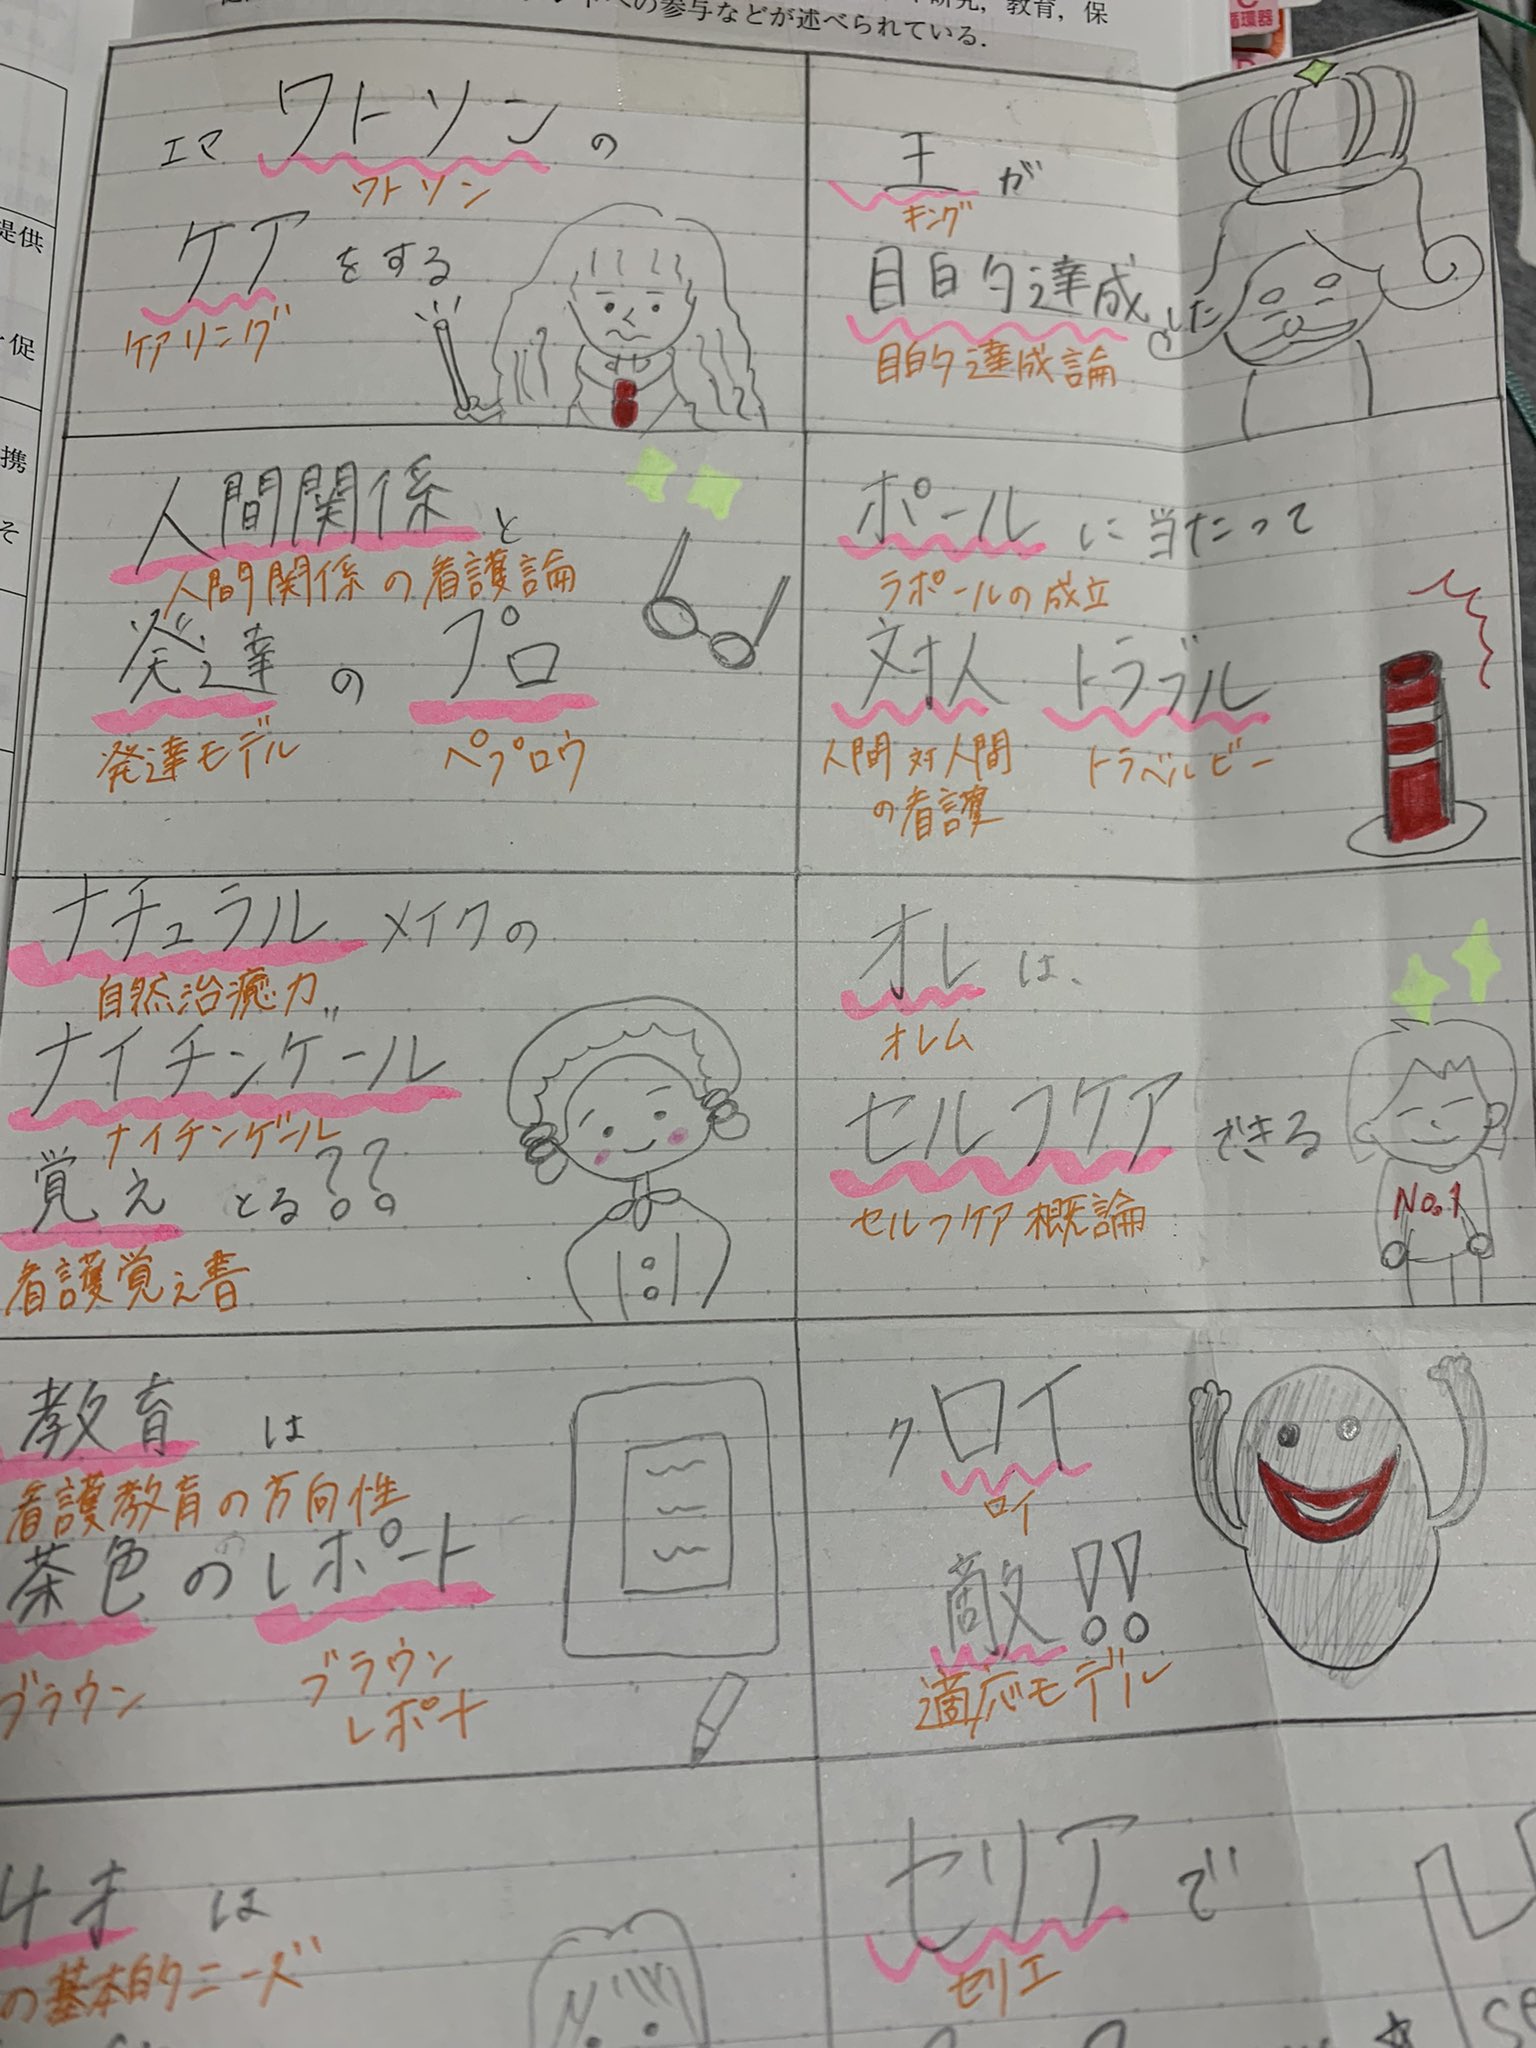 への参与などが述べられている.
研究，教育，保
循環器
提供
促
携
そ
エマ ワトソン の
ワトソン
ケア をする
ケアリング
王 が
キング
目的達成した
目的達成論
人間関係 と
人間関係の看護論
発達 の プロ
発達モデル ペプロウ
ポール に当たって
ラポールの成立
対人 トラブル
人間対人間
の看護
トラベルビー
ナチュラル メイクの
自然治癒力
ナイチンゲール
ナイチンゲール
覚え とる??
看護覚え書
オレ は、
オレム
セルフケア できる
セルフケア概論
No.1
教育 は
看護教育の方向性
茶色のレポート
ブラウン
ブラウン
レポート
クロイ
ロイ
敵!!
適応モデル
は
の基本的ニーズ
セリア で
セリエ